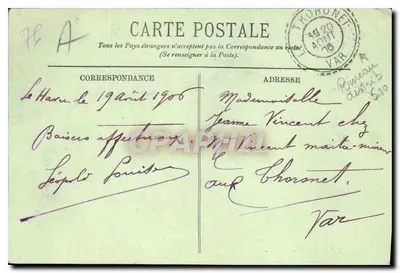 76 A
CARTE POSTALE
Tous les Pays étrangers n'acceptent pas la Correspondance au recto
(Se renseigner à la Poste).
THORONET
20
AOUT
VAR
Bureau
CORRESPONDANCE
Le Havre le 19 Août 1906
Baisers affectueux
Léopold Louise
ADRESSE
Mademoiselle
Jeanne Vincent chez
M Vincent maitre mineur
aux Thoronet
Var
CPAPHIL